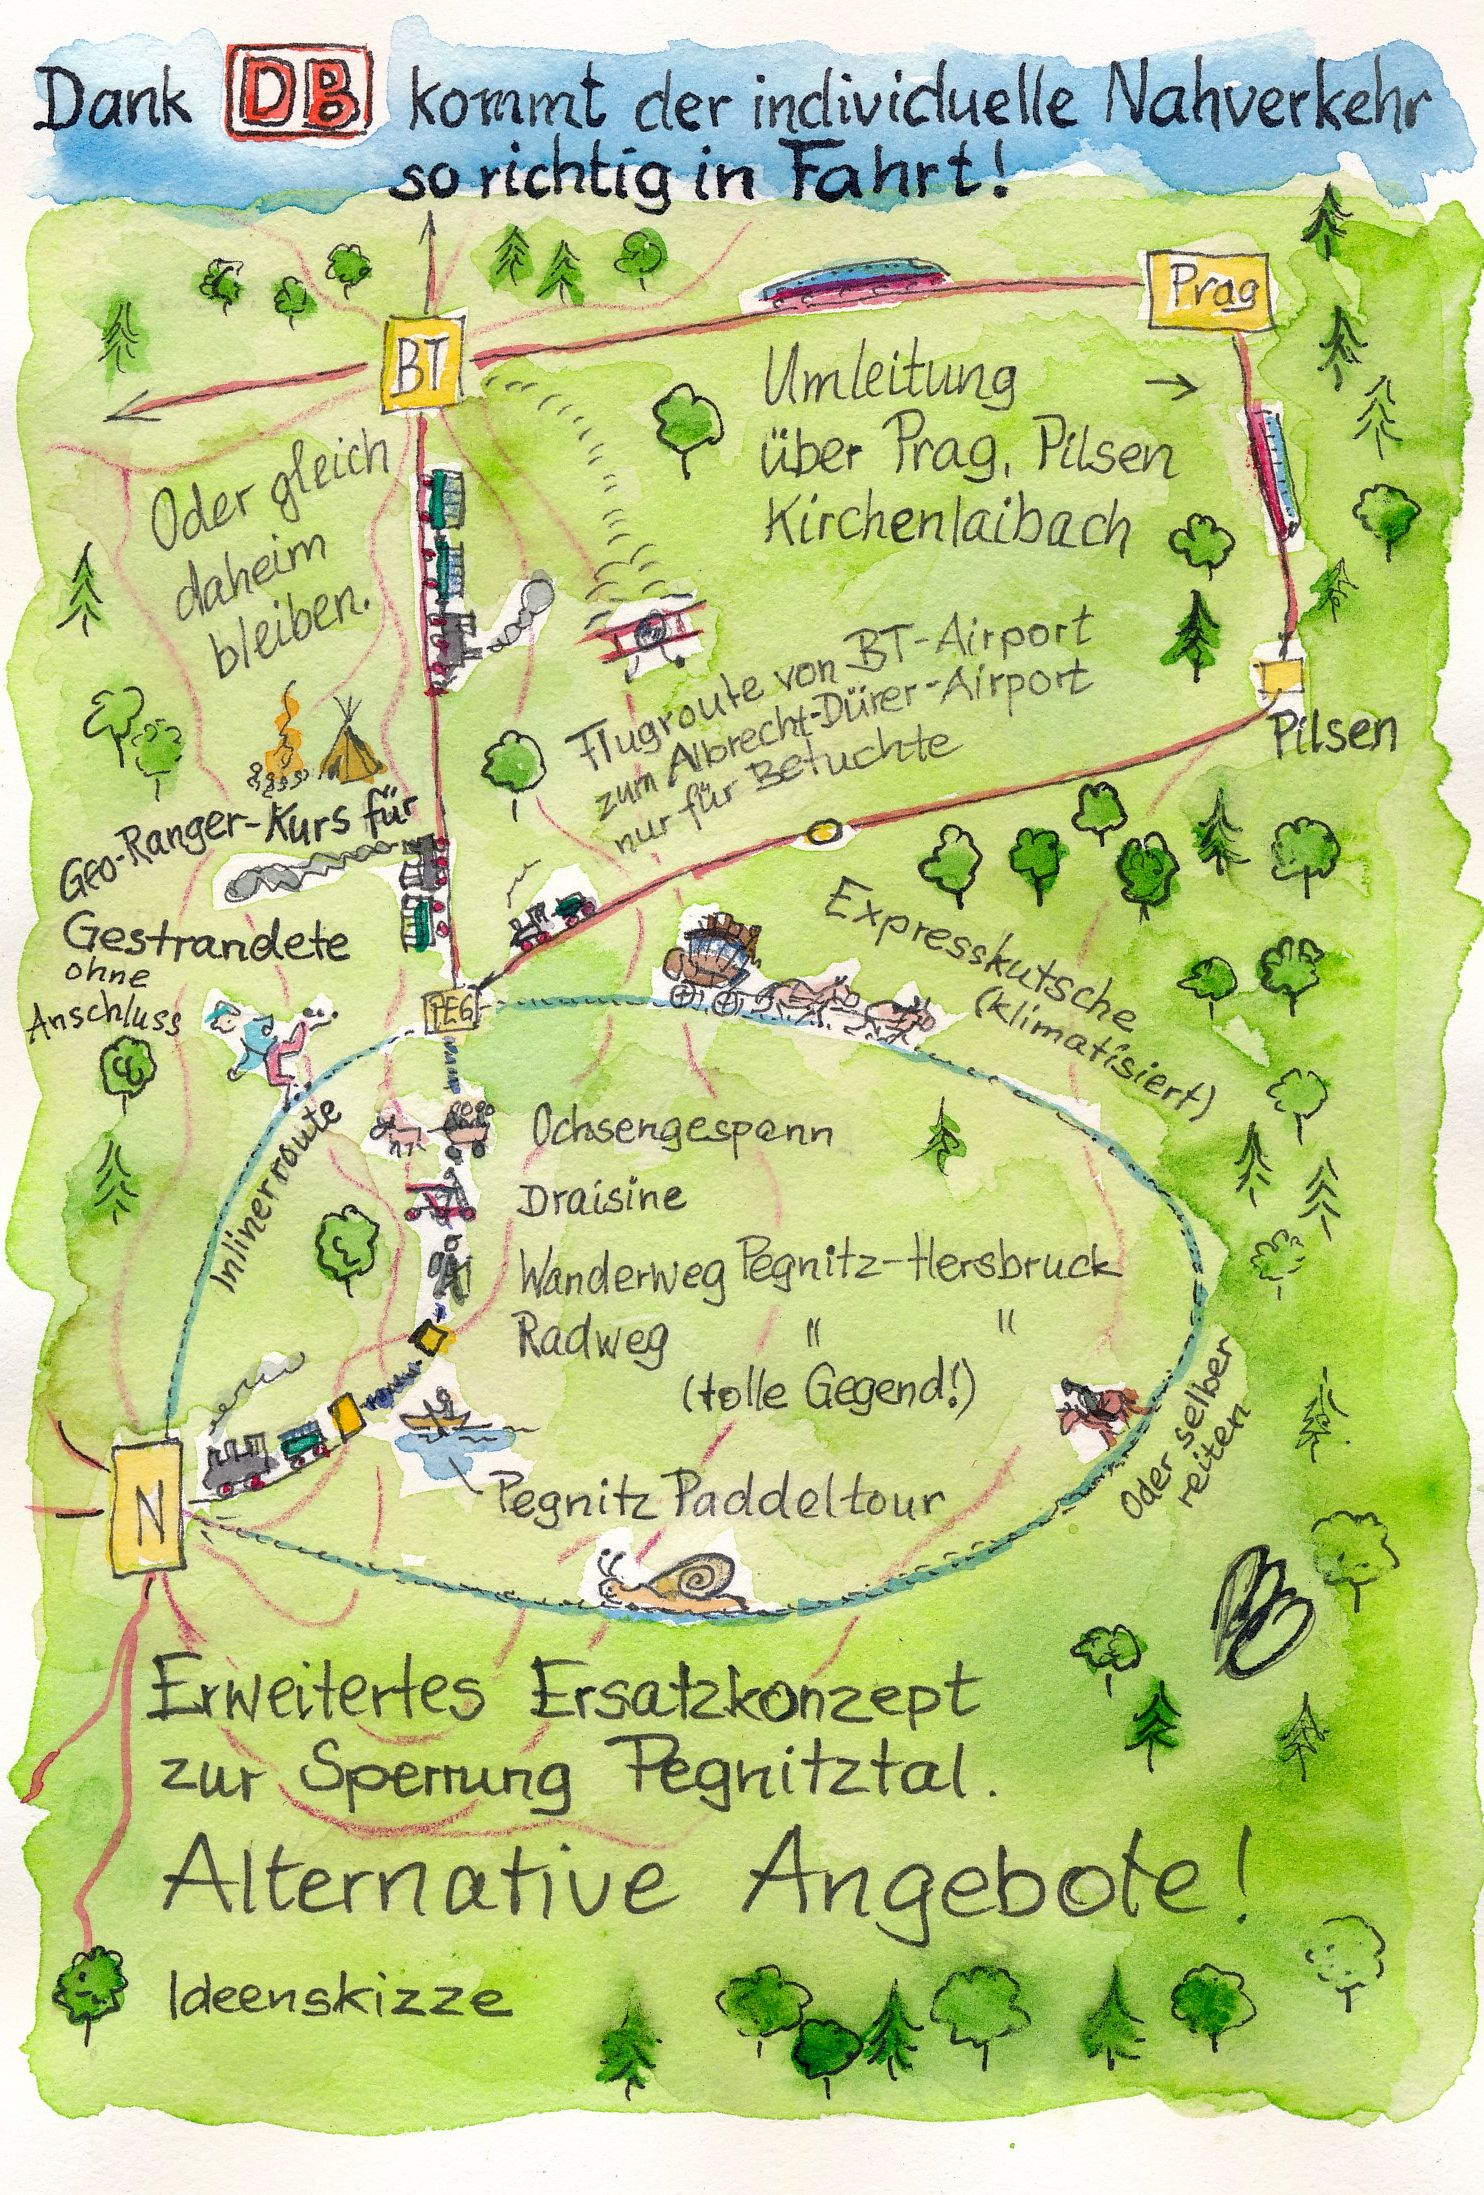 Dank DB kommt der individuelle Nahverkehr
so richtig in Fahrt!
BT
Prag
Umleitung
über Prag, Pilsen
Kirchenlaibach
Oder gleich
daheim
bleiben.
Flugroute von BT-Airport
zum Albrecht-Dürer-Airport
nur für Betuchte
Pilsen
Geo-Ranger-Kurs für
Gestrandete
ohne
Anschluss
Expresskutsche
(klimatisiert)
PEG
Inlinerroute
Ochsengespann
Draisine
Wanderweg Pegnitz-Hersbruck
Radweg " "
(tolle Gegend!)
Oder selber
reiten
Pegnitz Paddeltour
N
Erweitertes Ersatzkonzept
zur Sperrung Pegnitztal.
Alternative Angebote!
Ideenskizze